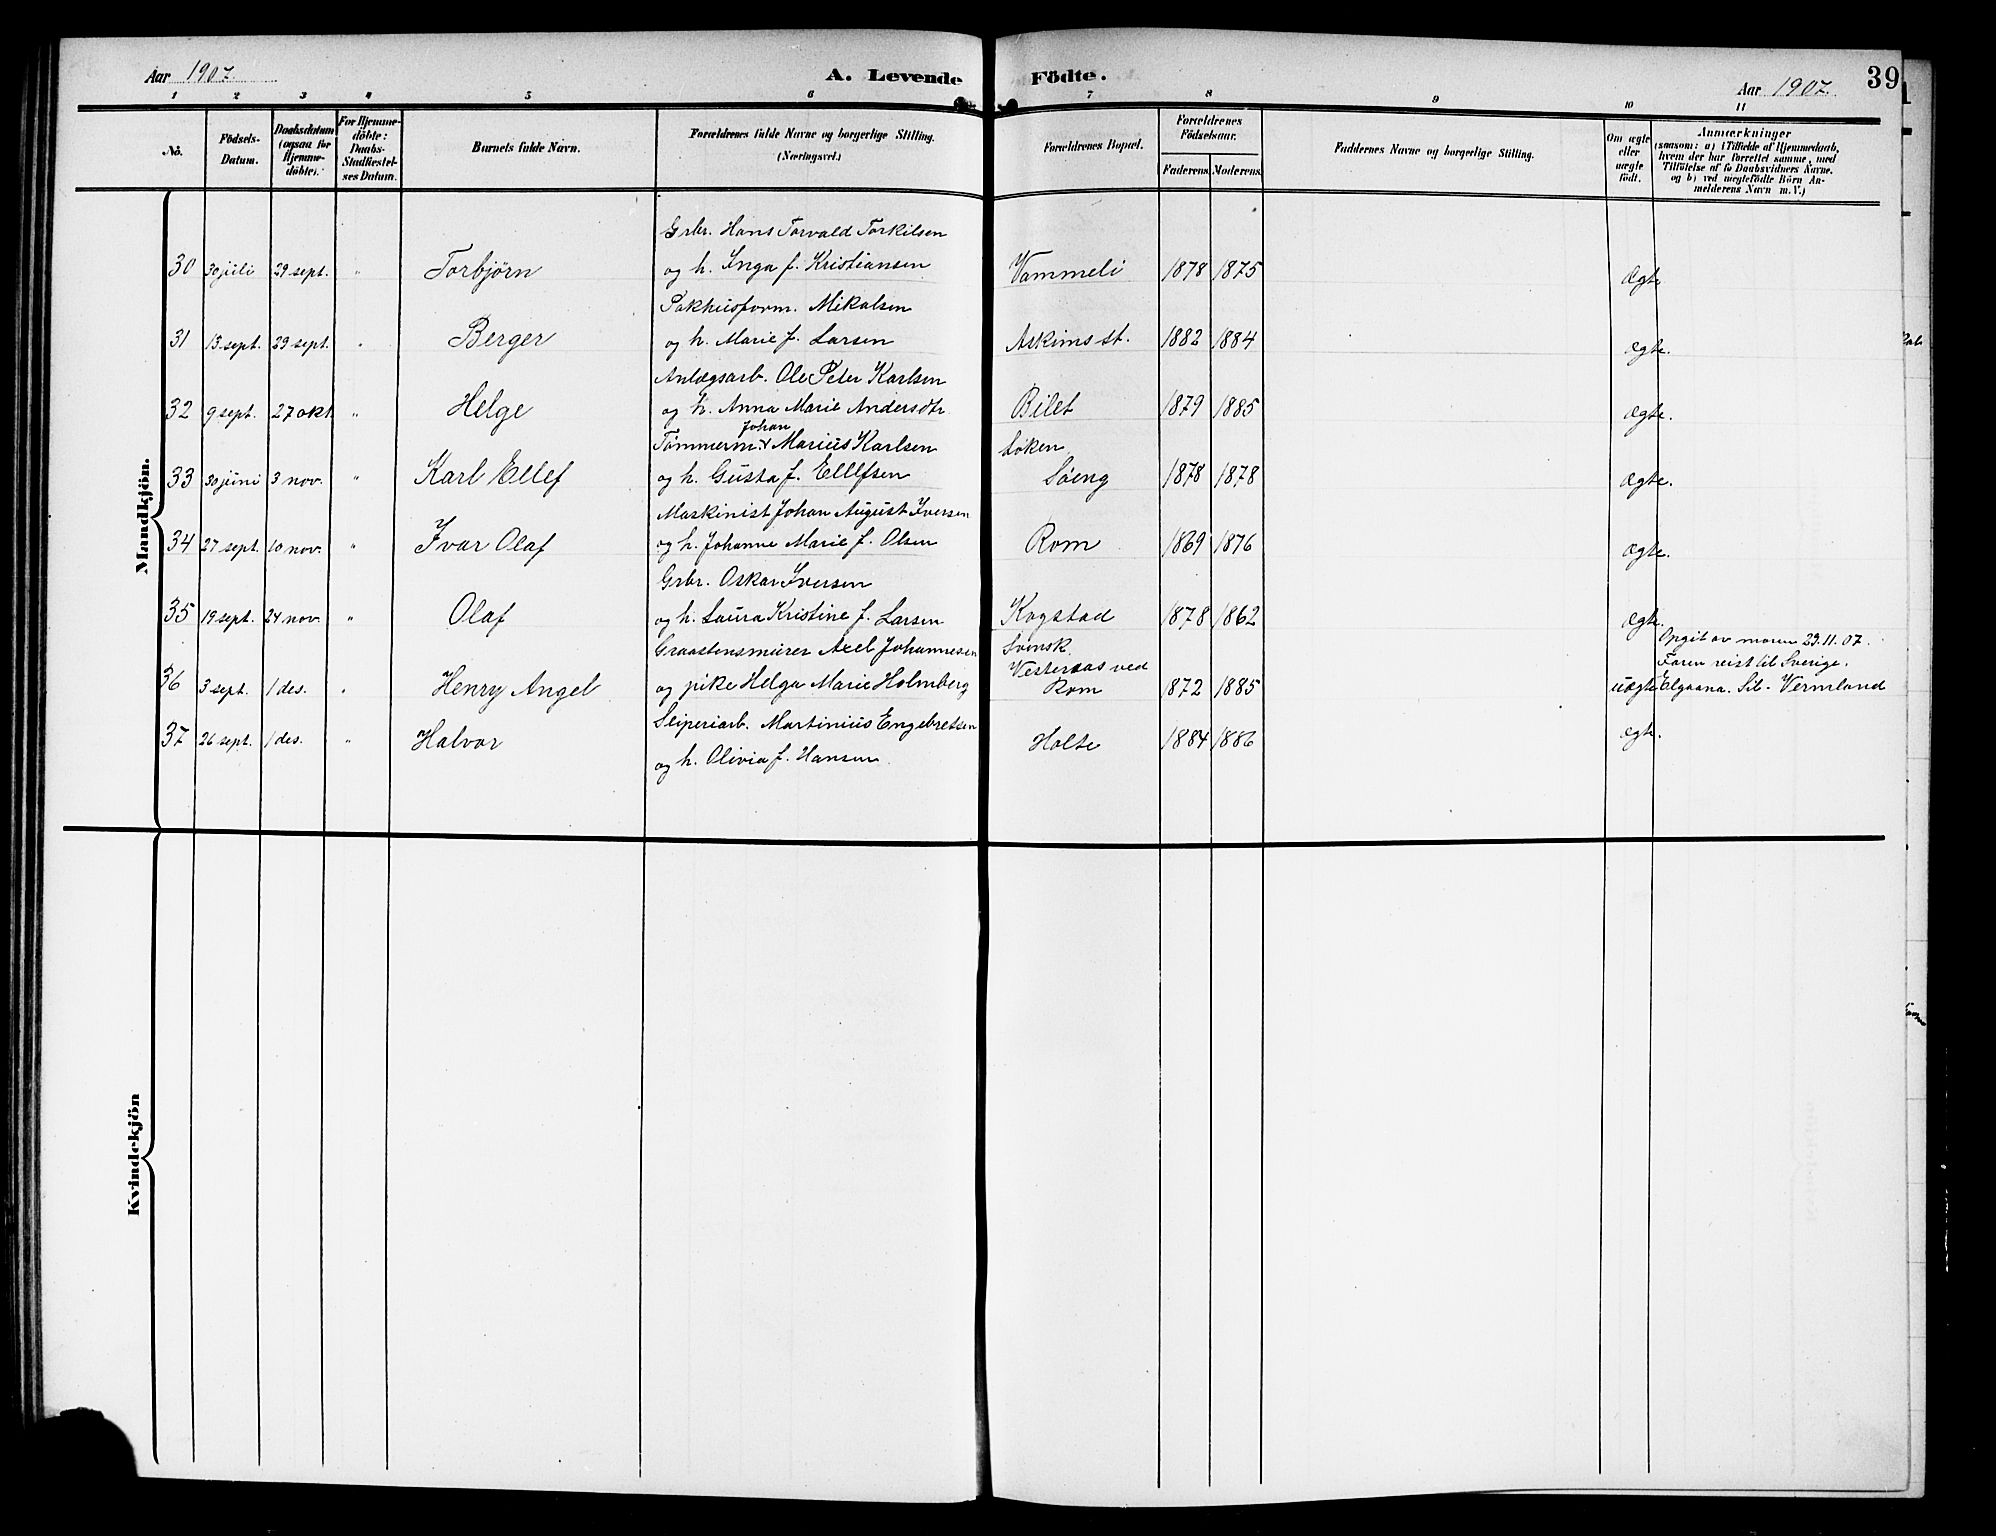 Aar 1907
A. Levende Födte.
Aar 1907
39
1 2 3 4 5 6 7 8 9 10 11
No.
Födsels-
Datum.
Daabsdatum
(ogsaa for
Hjemme-
döbte).
For Hjemme-
döbte:
Daabs-
Stadfæstel-
ses Datum.
Barnets fulde Navn.
Forældrenes fulde Navne og borgerlige Stilling.
(Næringsvei.)
Forældrenes Bopæl.
Forældrenes
Födselsaar.
Faderens. Moderens.
Faddernes Navne og borgerlige Stilling.
Om ægte
eller
uægte
födt.
Anmærkninger
(saasom: a) i Tilfælde af Hjemmedaab,
hvem der har forrettet samme, med
Tilföielse af to Daabsvidners Navne.
og b) ved uægtefödte Börn An-
melderens Navn m. V.)
Mandkjön.
Grbr. Hans Torvald Torkilsen
30 30 juli 29 sept. " Torbjørn og h. Inga f. Kristiansen Vammeli 1878 1875 ægte
Pakhusform. Mikalsen
31 13 sept. 29 sept. " Berger og h. Marie f. Larsen Askims st. 1882 1884 ægte.
Anlægsarb. Ole Peter Karlsen
32 9 sept. 27 okt. " Helge og h. Anna Marie Andersdtr. Bilet 1879 1885 ægte.
Johan
Tømmerm. Marius Karlsen Løken
33 30 juni 3 nov. " Karl Ellef og h. Gusta f. Ellefsen Søeng 1878 1878 ægte.
Maskinist Johan August Iversen
34 27 sept. 10 nov. " Ivar Olaf og h. Johanne Marie f. Olsen Rom 1869 1876 ægte.
Grbr. Oskar Iversen
35 19 sept. 24 nov. " Olaf og h. Laura Kristine f. Larsen Kogstad 1878 1862 ægte.
Graastensmurer Axel Johannesen Svensk. Opgit av moren 29.11.07.
Vesteraas ved Faren reist til Sverige.
36 3 sept. 1 des. " Henry Angel og pike Helga Marie Holmberg Rom 1872 1885 uægte Elgaana. Sil- Vermland
Sliperiarb. Martinius Engebretsen
37 26 sept. 1 des. " Halvor Holte 1884 1886 ægte.
og h. Olivia f. Hansen
Kvindekjön